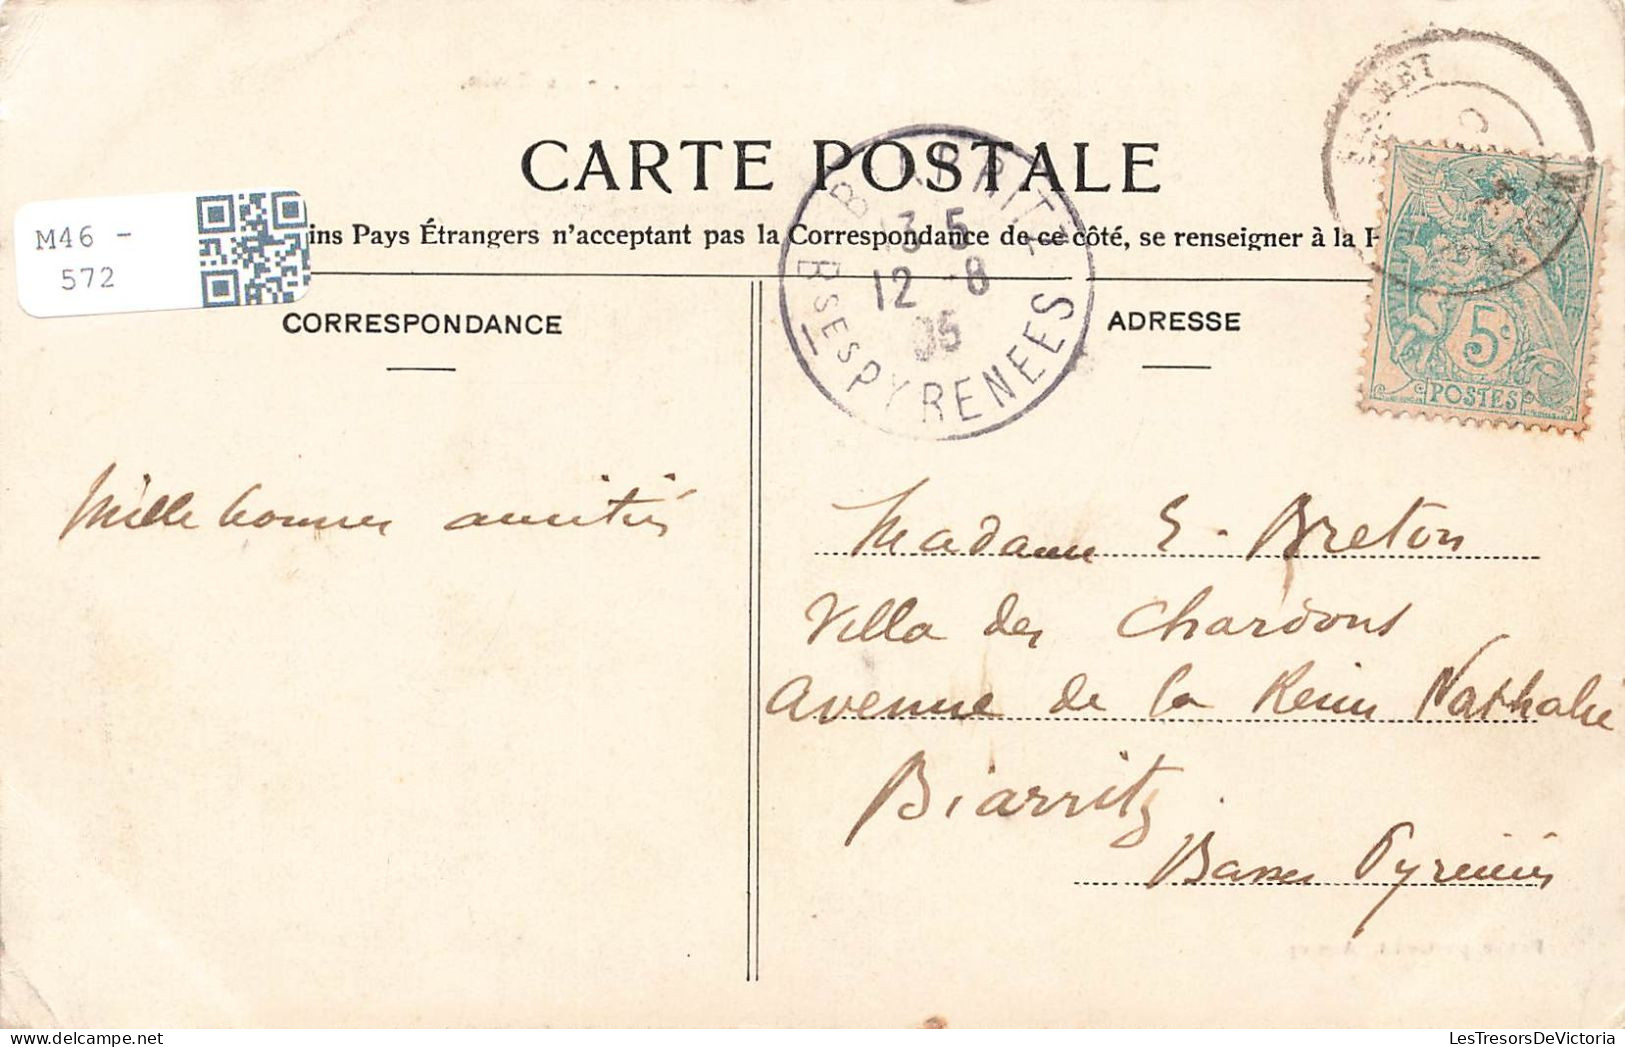 CARTE POSTALE
M46 -
572
ins Pays Étrangers n'acceptant pas la Correspondance de ce côté, se renseigner à la P
CORRESPONDANCE
ADRESSE
BIARRITZ
3 5
12 -8
05
BSES PYRENEES
5c
POSTES
Mille bonnes amitiés
Madame E. Breton
Villa des Chardons
Avenue de la Reine Nathalie
Biarritz.
Basses Pyrénées
LesTresorsDeVictoria